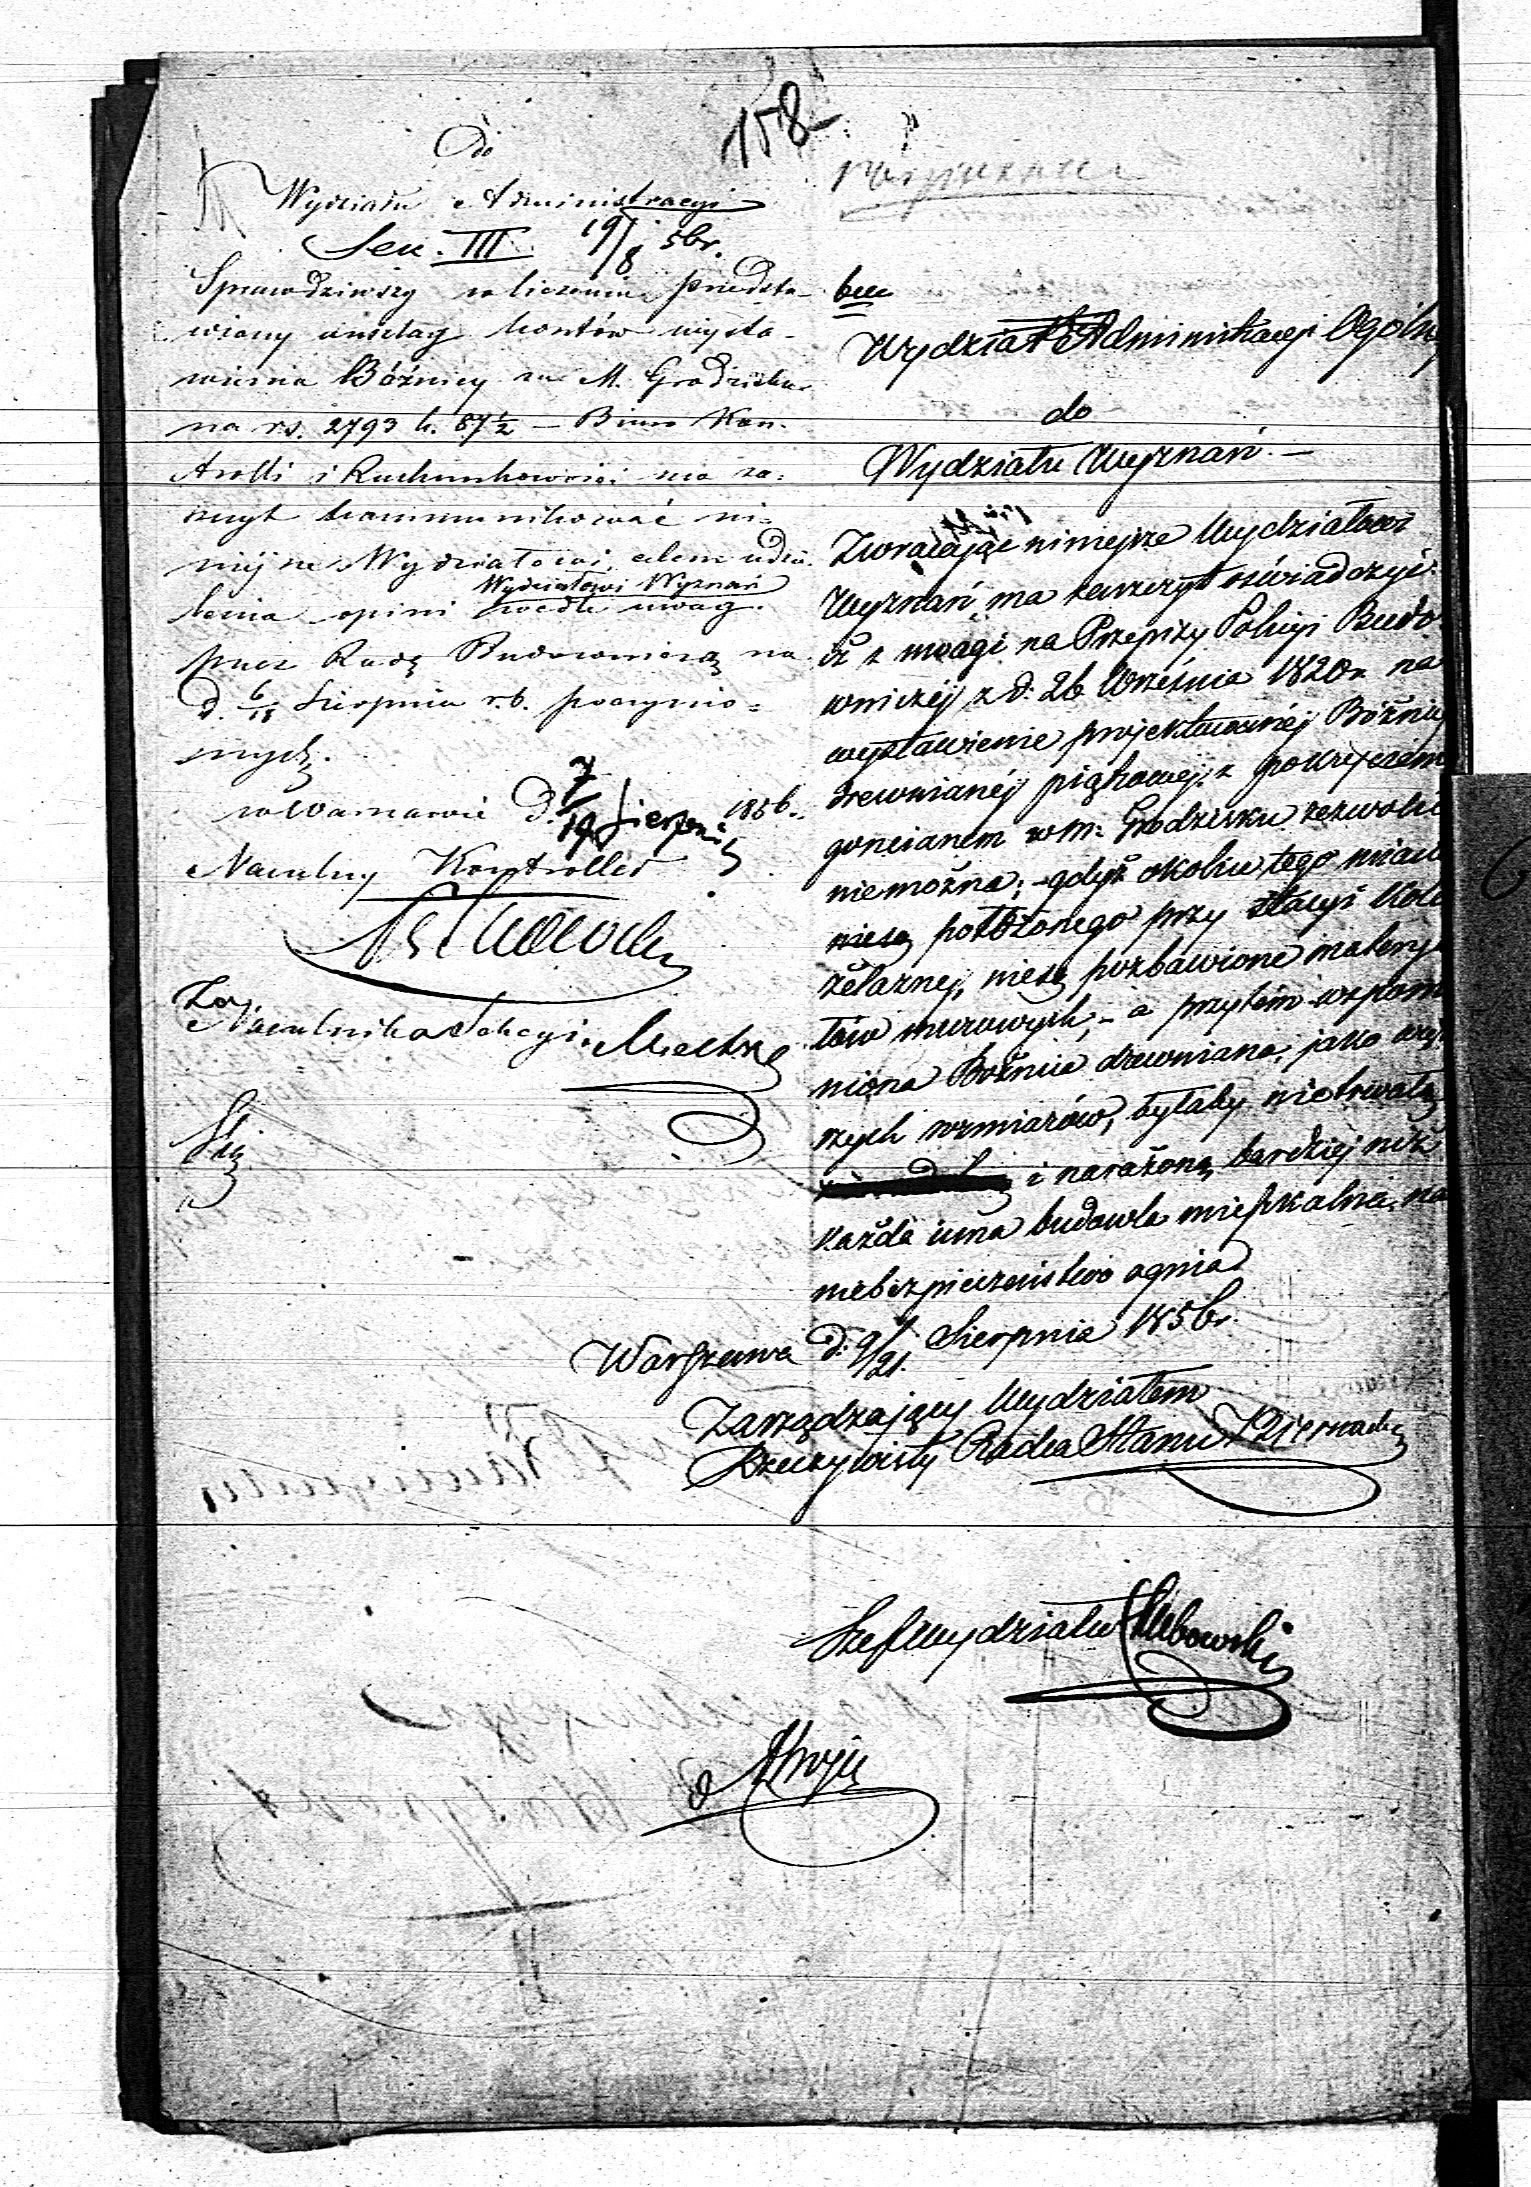 158
Do
Wydziału Administracyi
Sek. III 19/8 56r.
Sprawdziwszy w liczeniu przedsta-
wiony anszlag kosztów wysta-
wienia Bóźnicy w M. Grodzisku
na rs. 2793 k. 87½ – Biuro Kon-
trolli i Rachunkowości ma za-
szczyt kommunikować ni-
niejsze Wydziałowi, celem udzie-
lenia opinii Wydziałowi Wyznań wedle uwag
przez Radę Budowniczą na
d. 6/18 Sierpnia r.b. poczynio-
nych.
w Warszawie d. 7/19 Sierpnia 1856.
Naczelny Kontroller
Za Naczelnika Sekcyi
bm
Wydział Administracyi Ogólnej
do
Wydziału Wyznań. –
Zwracając niniejsze Wydziałowi
Wyznań, ma zaszczyt oświadczyć
iż z uwagi na Przepisy Policyi Budo-
wniczej z d. 26 Września 1820 r. na
wystawienie projektowanéj Bóźnicy
drewnianéj piętrowej, z pokryciem
goncianem w m. Grodzisku zezwolić
niemożna; – gdyż okolice tego miasta
położonego przy stacyi Kolei
żelaznej, niesą pozbawione materya-
łów murowych, – a przytém wspom-
niona Bóźnica drewniana, jako więk-
szych rozmiarów, byłaby nietrwałą
i narażoną bardziej niż
każda inna budowla mieszkalna, na
niebezpieczeństwo ognia
Warszawa d. 9/21 Sierpnia 1856 r.
Zarządzający Wydziałem
Rzeczywisty Radca Stanu
Szef Wydziału